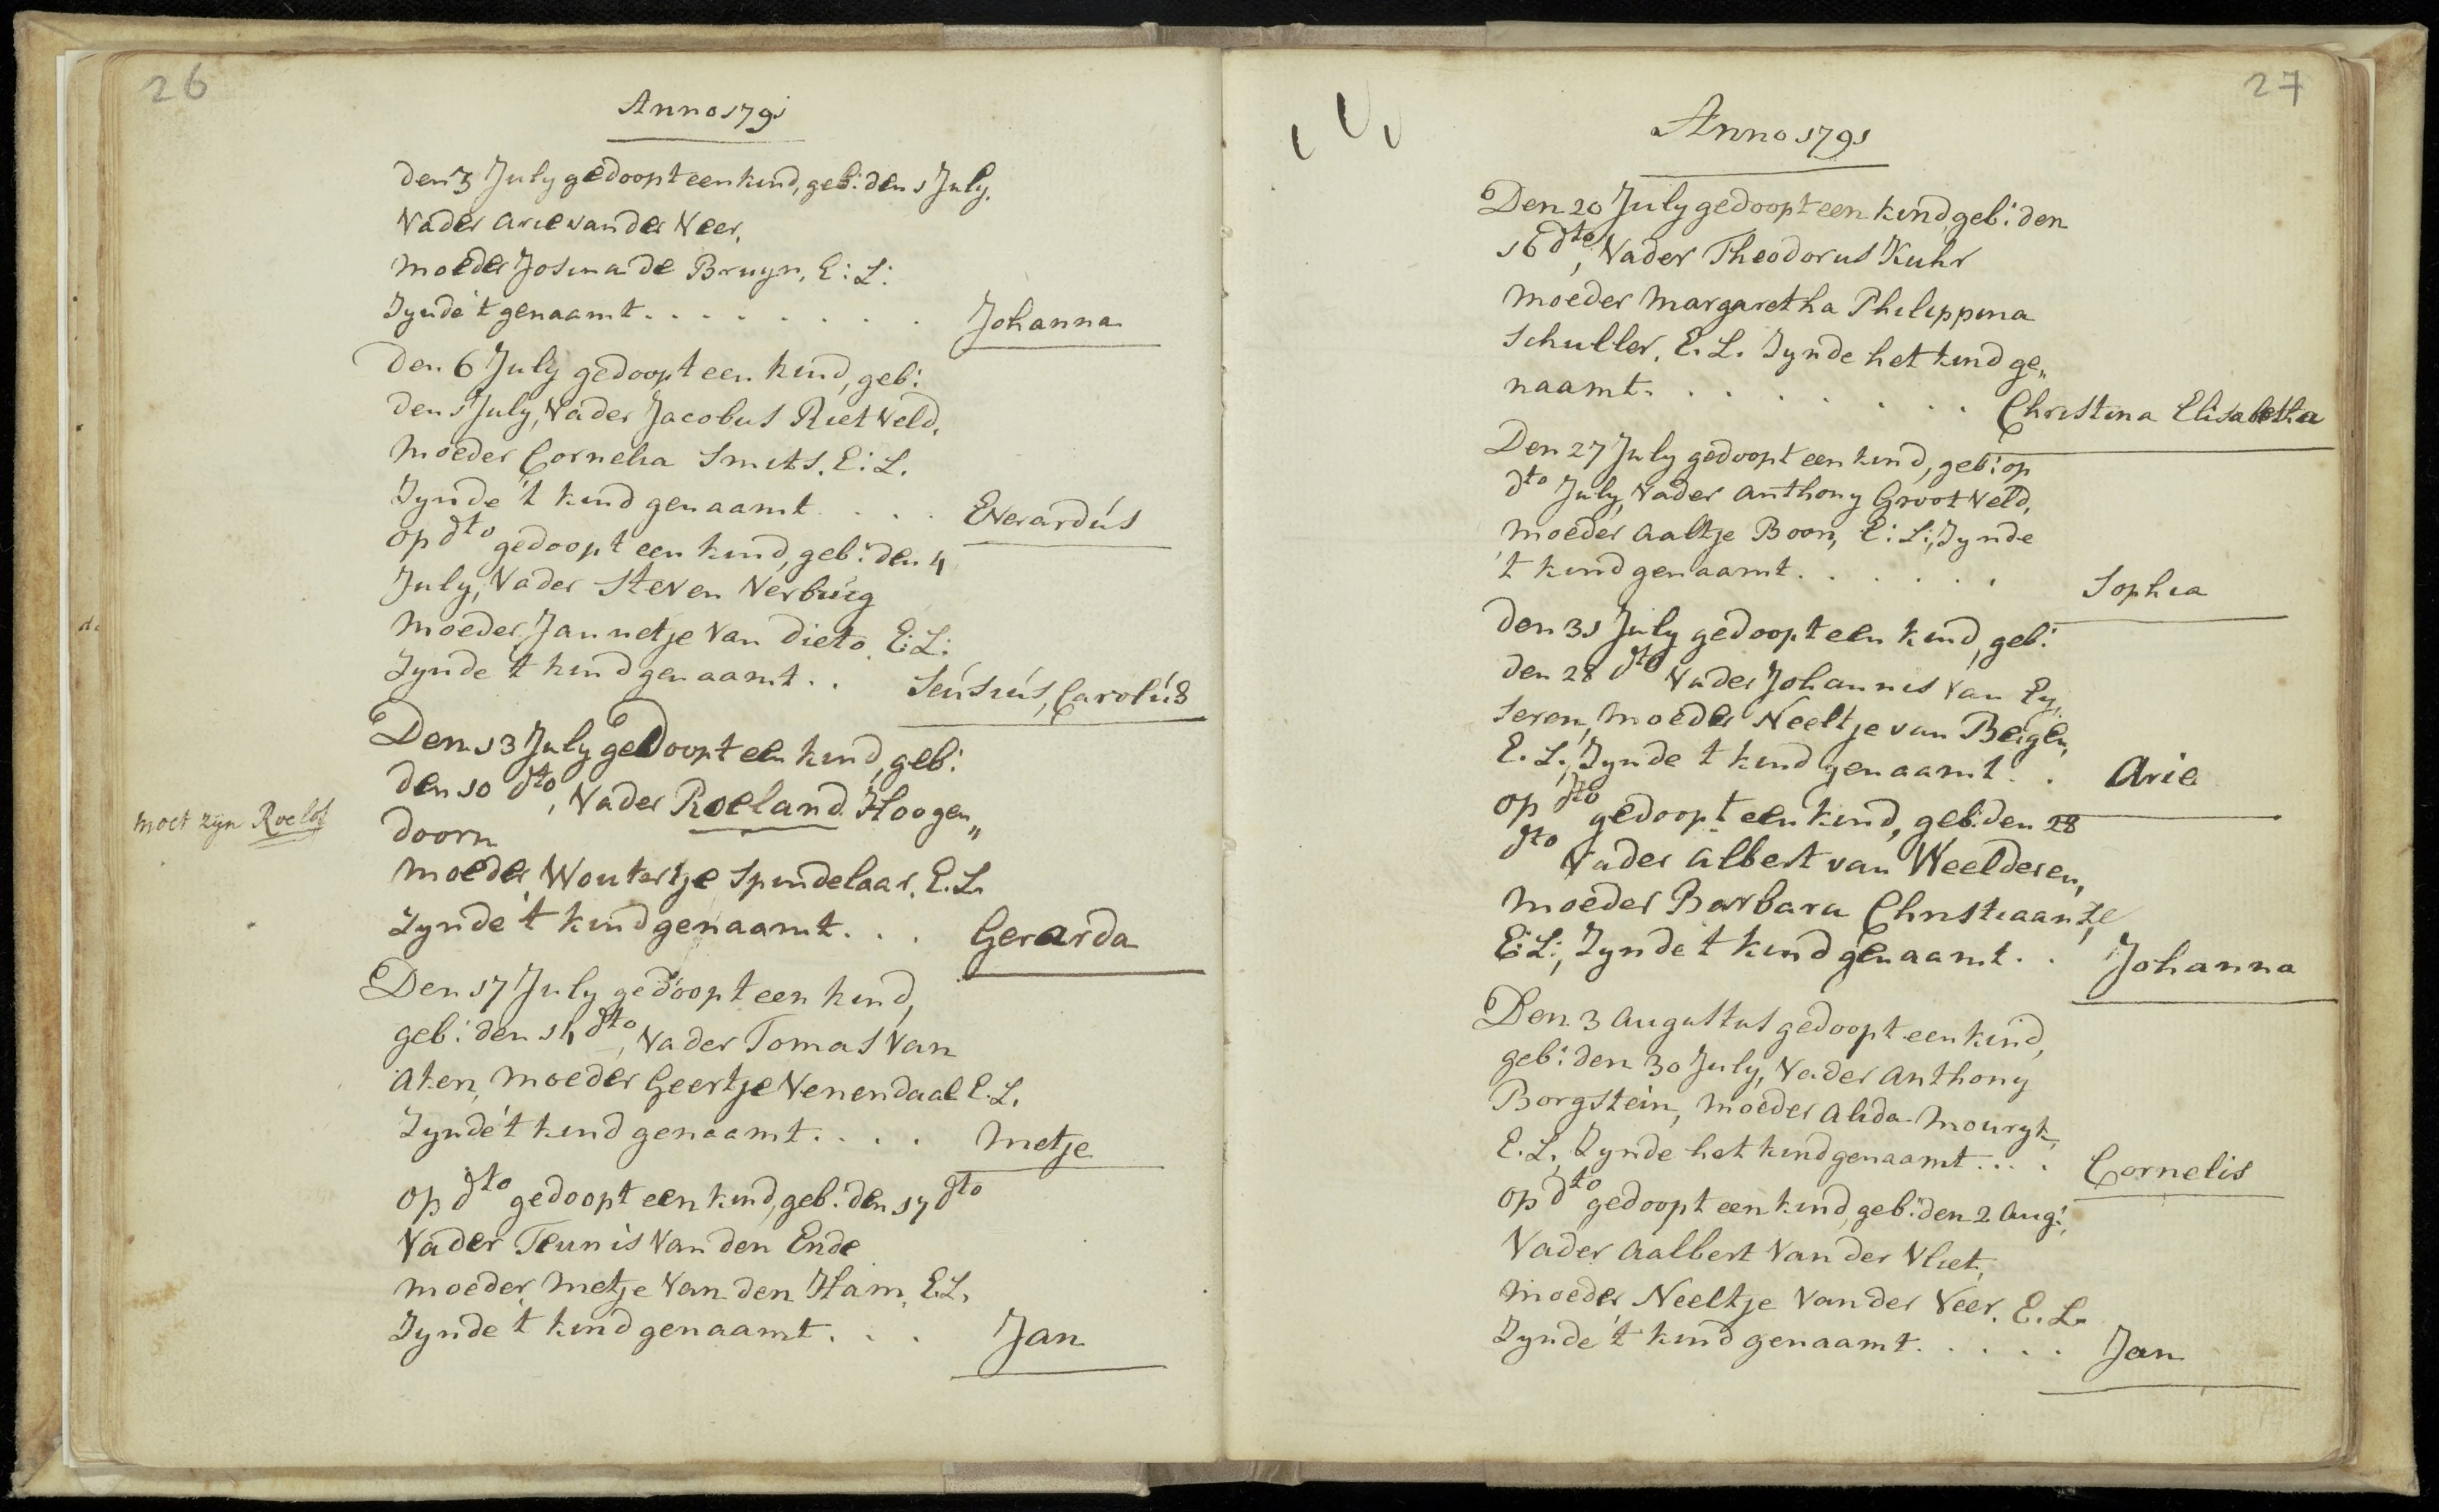 26
Anno 1791
den 3 July gedoopt een kind, geb: den 1 July.
Vader Arie van der Neer,
Moeder Josina de Bruyn, E: L:
Zynde 't genaamt. . . . . . . . Johanna
den 6 July gedoopt een kind, geb:
den 1 July, Vader Jacobus Rietveld,
Moeder Cornelia Smits. E: L.
Zynde 't kind genaamt . . . . Everardús
op dto gedoopt een kind, geb: den 4
July, Vader Steven Verburg
Moeder Jannetje van Dieto. E: L:
Zynde 't kind genaamt . . Carolús
Den 13 July gedoopt een kind, geb:
den 10 dto, Vader Roeland Hoogen„
doorn
moet zijn Roelof
Moeder Woutertje Spindelaar. E. L.
Zynde 't kind genaamt. . . Gerarda
Den 17 July gedoopt een kind,
geb: den 14 dto, Vader Tomas van
Aten, Moeder Geertje Venendaal E. L.
Zynde 't kind genaamt. . . . Metje
op dto gedoopt een kind, geb: den 17 dto
Vader Teunis van den Ende
Moeder Metje van den Ham, E. L.
Zynde 't kind genaamt. . . Jan
27
Anno 1791
Den 20 July gedoopt een kind, geb: den
16 dto, Vader Theodorus Kuhr
Moeder Margaretha Philippina
Schuller, E. L. Zynde het kind ge„
naamt. . . . . . . . Christina Elisabetha
Den 27 July gedoopt een kind, geb: op
dto July, Vader Anthony Grootveld,
Moeder Aaltje Boon, E: L:, Zynde
't kind genaamt. . . . . . Sophia
den 31 July gedoopt een kind, geb:
den 28 dto Vader Johannis van Ey,
seren, Moeder Neeltje van Bergen,
E. L., Zynde 't kind genaamt . . Arie
op dto gedoopt een kind, geb: den 28
dto Vader Albert van Weelderen,
Moeder Barbara Christiaanze,
E: L:, Zynde 't kind genaamt. . Johanna
Den 3 Augustus gedoopt een kind,
geb: den 30 July, Vader Anthony
Borgstein, Moeder Alida Mouryk,
E. L., Zynde het kind genaamt . . . . Cornelis
op dto gedoopt een kind geb: den 2 Aug:,
Vader Aalbert van der Vliet,
Moeder Neeltje van der Veer. E. L.
Zynde 't kind genaamt. . . . . Jan